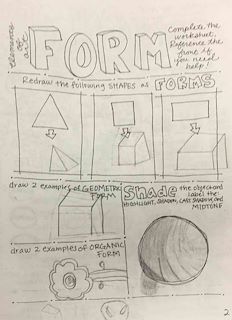 elements of art
FORM
Complete the
worksheet.
Reference the
front if
you need
help!
Redraw the following SHAPES as FORMS
draw 2 examples of GEOMETRIC
FORM
Shade the object and
label the:
HIGHLIGHT, SHADING, CAST SHADOW, and
MIDTONE
draw 2 examples of ORGANIC
FORM
2